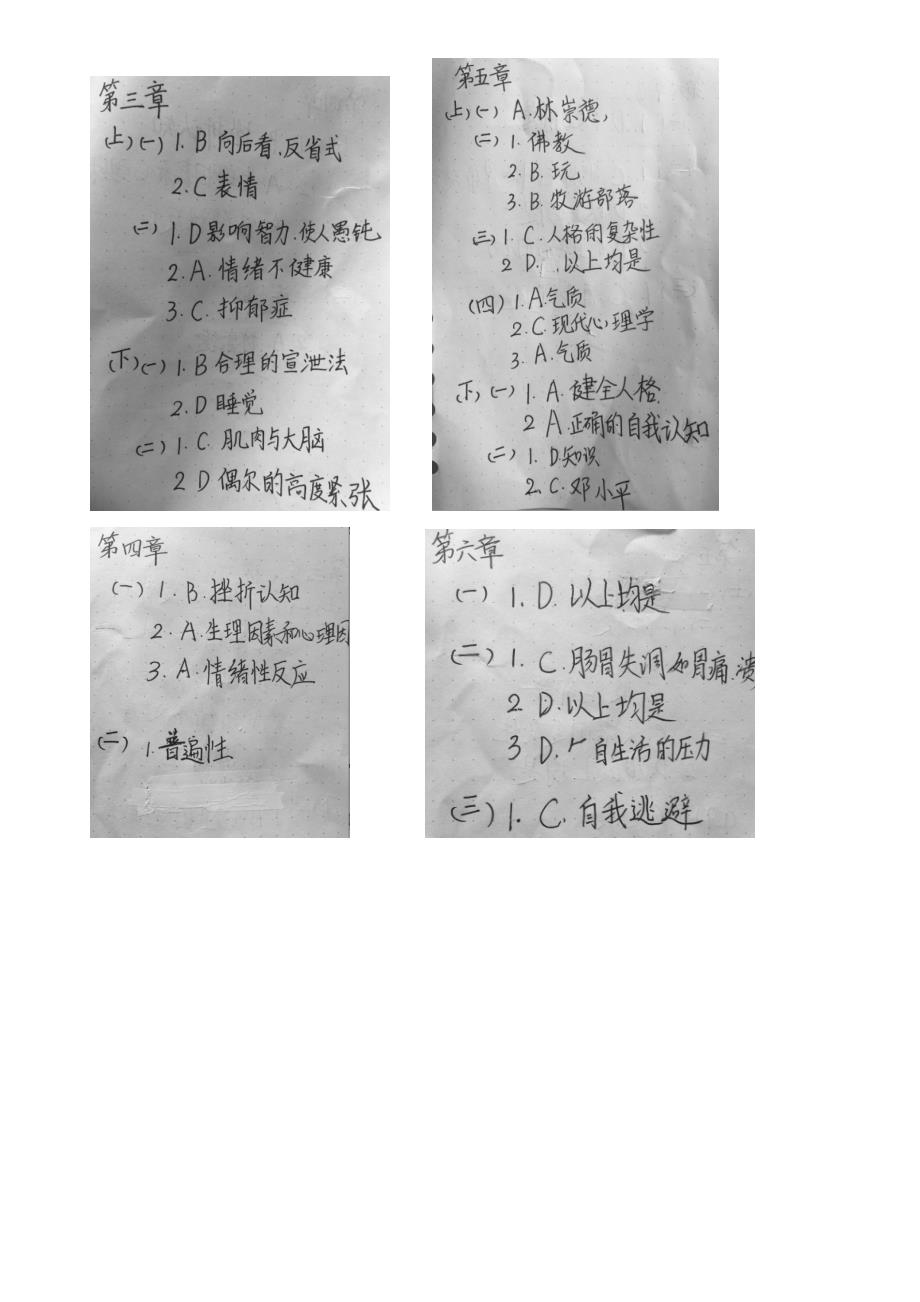 第三章
(上)(一) 1. B 向后看、反省式
2. C 表情
(二) 1. D 影响智力、使人愚钝
2. A. 情绪不健康
3. C. 抑郁症
(下)(一) 1. B 合理的宣泄法
2. D 睡觉
(二) 1. C. 肌肉与大脑
2 D 偶尔的高度紧张
第五章
(上)(一) A. 林崇德,
(二) 1. 佛教
2. B. 玩
3. B. 牧游部落
(三) 1. C. 人格的复杂性
2 D. 以上均是
(四) 1. A. 气质
2. C. 现代心理学
3. A. 气质
(下)(一) 1. A. 健全人格.
2 A. 正确的自我认知
(二) 1. D. 知识
2. C. 邓小平
第四章
(一) 1. B. 挫折认知
2. A. 生理因素和心理因
3. A. 情绪性反应
(二) 1. 普遍性
第六章
(一) 1. D. 以上均是
(二) 1. C. 肠胃失调 如胃痛、溃
2. D. 以上均是
3 D. 自生活的压力
(三) 1. C. 自我逃避